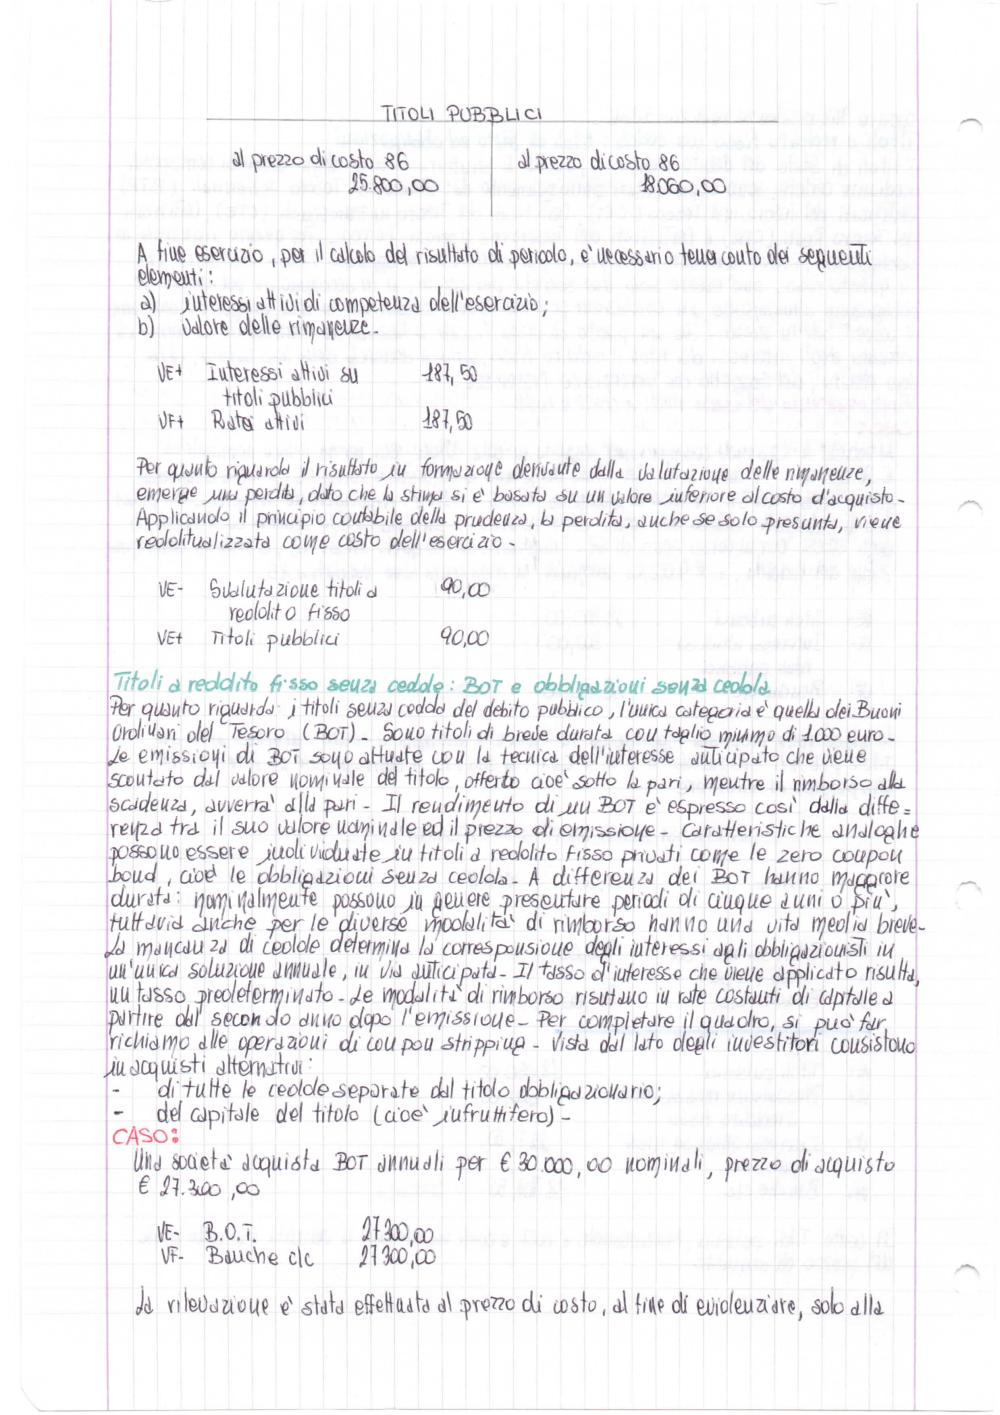 TITOLI PUBBLICI
al prezzo di costo 86 al prezzo di costo 86
25.800,00 18.060,00
A fine esercizio, per il calcolo del risultato di periodo, e' necessario tener conto dei seguenti
elementi:
a) interessi attivi di competenza dell'esercizio;
b) valore delle rimanenze.
VE+ Interessi attivi su 187,50
titoli pubblici
VF+ Ratei attivi 187,50
Per quanto riguarda il risultato in formazione derivante dalla valutazione delle rimanenze,
emerge una perdita, dato che la stima si e' basata su un valore inferiore al costo d'acquisto.
Applicando il principio contabile della prudenza, la perdita, anche se solo presunta, viene
reddituализzata come costo dell'esercizio.
VE- Svalutazione titoli a 90,00
reddito fisso
VE+ Titoli pubblici 90,00
Titoli a reddito fisso senza cedole: BOT e obbligazioni senza cedola
Per quanto riguarda i titoli senza cedola del debito pubblico, l'unica categoria e' quella dei Buoni
Ordinari del Tesoro (BOT). Sono titoli di breve durata con taglio minimo di 1.000 euro.
Le emissioni di BOT sono attuate con la tecnica dell'interesse anticipato che viene
scontato dal valore nominale del titolo, offerto cioe' sotto la pari, mentre il rimborso alla
scadenza, avverra' alla pari. Il rendimento di un BOT e' espresso cosi' dalla diffe=
renza tra il suo valore nominale ed il prezzo di emissione. Caratteristiche analoghe
possono essere individuate in titoli a reddito fisso privati come le zero coupon
bond, cioe' le obbligazioni senza cedola. A differenza dei BOT hanno maggiore
durata: nominalmente possono in genere presentare periodi di cinque anni o piu',
tuttavia anche per le diverse modalita' di rimborso hanno una vita media breve.
La mancanza di cedole determina la corresponsione degli interessi agli obbligazionisti in
un'unica soluzione annuale, in via anticipata. Il tasso d'interesse che viene applicato risulta,
un tasso predeterminato. Le modalita' di rimborso risutano in rate costanti di capitale a
partire dal secondo anno dopo l'emissione. Per completare il quadro, si puo' far
richiamo alle operazioni di coupon stripping. Vista dal lato degli investitori consistono
in acquisti alternativi:
- di tutte le cedole separate dal titolo obbligazionario;
- del capitale del titolo (cioe' infruttifero).
CASO:
Una societa' acquista BOT annuali per € 30.000,00 nominali, prezzo di acquisto
€ 27.300,00
VE- B.O.T. 27300,00
VF- Banche c/c 27300,00
La rilevazione e' stata effettuata al prezzo di costo, al fine di evidenziare, solo alla